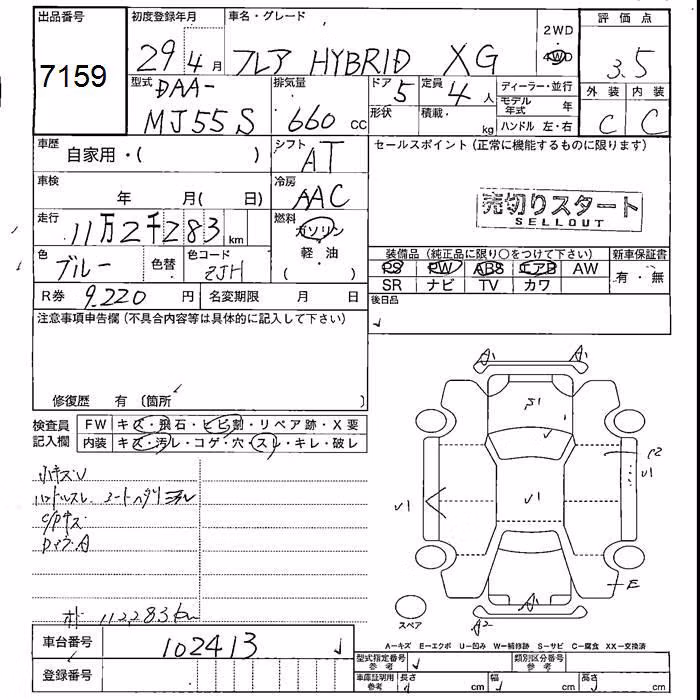 出品番号 初度登録年月 車名・グレード 2WD 4WD 評価点
7159 29年 4月 フレア HYBRID XG 3.5
型式 DAA- 排気量 ドア 5 定員 4人 ディーラー・並行 外装 内装
MJ55S 660cc 形状 積載 kg モデル年式 年 C C
ハンドル 左・右
車歴 自家用・( ) シフト AT セールスポイント(正常に機能するものに限ります)
車検 年 月( 日) 冷房 AAC
売切りスタート
SELLOUT
走行 11万2千283km 燃料 ガソリン
軽・油
( )
色 ブルー 色替 色コード ZJH
装備品(純正品に限り○をつけて下さい) 新車保証書
PS PW ABS エアB AW 有・無
SR ナビ TV カワ
R券 9,220円 名変期限 月 日 後日品
注意事項申告欄(不具合内容等は具体的に記入して下さい)
修復歴 有(箇所
検査員 FW キズ・飛石・ヒビ割・リペア跡・X要
記入欄 内装 キズ・汚レ・コゲ・穴・スレ・キレ・破レ
小キズU
ハンドルスレ シートヘタリ
C/Pキズ
A1 A1
U1
U1
U1
U1
E
A
A2
スペア
112,283km
A=キズ E=エクボ U=凹み W=補修跡 S=サビ C=腐食 XX=交換済
車台番号 102413
型式指定番号 参考 類別区分番号 参考
登録番号 車庫証明用 参考 長さ cm 幅 cm 高さ cm